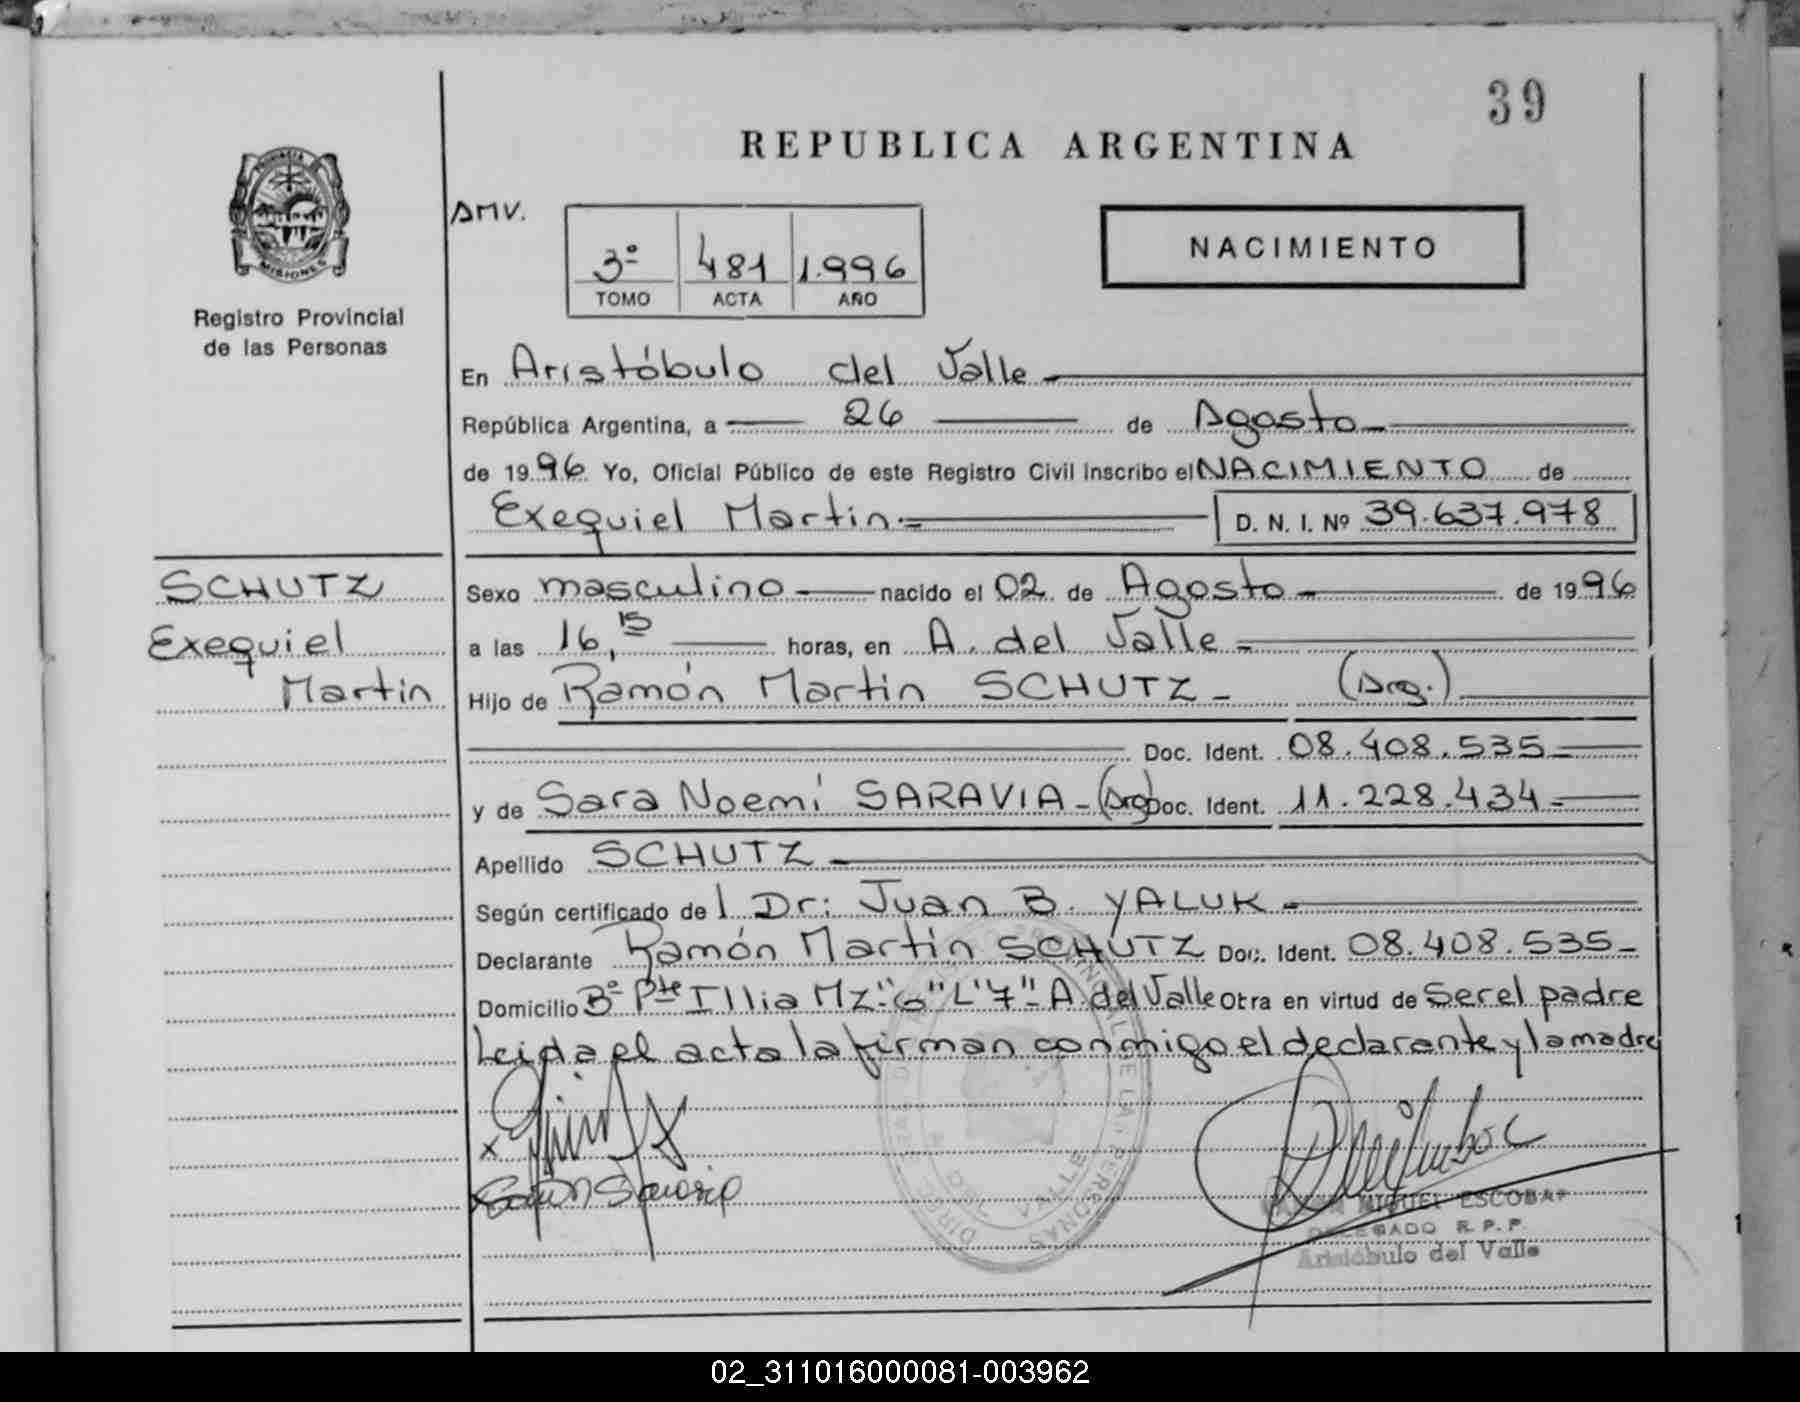 39
REPUBLICA ARGENTINA
PROVINCIA
MISIONES
Registro Provincial
de las Personas
AMV.
3º 481 1.996
TOMO ACTA AÑO
NACIMIENTO
En Aristóbulo del Valle
República Argentina, a 26 de Agosto
de 1996 Yo, Oficial Público de este Registro Civil inscribo el NACIMIENTO de
Exequiel Martin D. N. I. Nº 39.637.978
SCHUTZ
Exequiel
Martin
Sexo masculino nacido el 02 de Agosto de 1996
a las 16,15 horas, en A. del Valle
Hijo de Ramón Martin SCHUTZ (Arg.)
Doc. Ident. 08.408.535
y de Sara Noemí SARAVIA (Arg) Doc. Ident. 11.228.434
Apellido SCHUTZ
Según certificado del Dr: Juan B. YALUK
Declarante Ramón Martin SCHUTZ Doc. Ident. 08.408.535
Domicilio Bº Pte Illia Mz "G" L "7" A. del Valle Otra en virtud de Ser el padre
Leida el acta la firman conmigo el declarante y la madre
x
MIGUEL ESCOBAR
DELEGADO R. P. P.
Aristóbulo del Valle
A. DEL VALLE
02_311016000081-003962